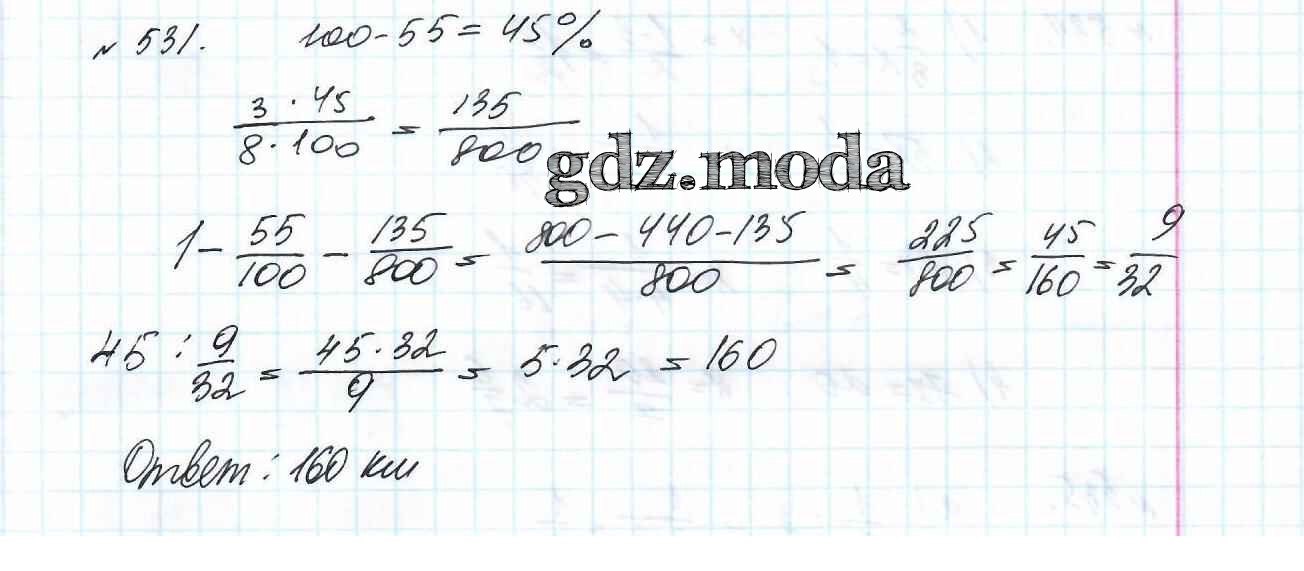 № 531. 100 - 55 = 45%
3 · 45 / 8 · 100 = 135 / 800
gdz.moda
1 - 55/100 - 135/800 = 800 - 440 - 135 / 800 = 225/800 = 45/160 = 9/32
45 : 9/32 = 45 · 32 / 9 = 5 · 32 = 160
Ответ: 160 км